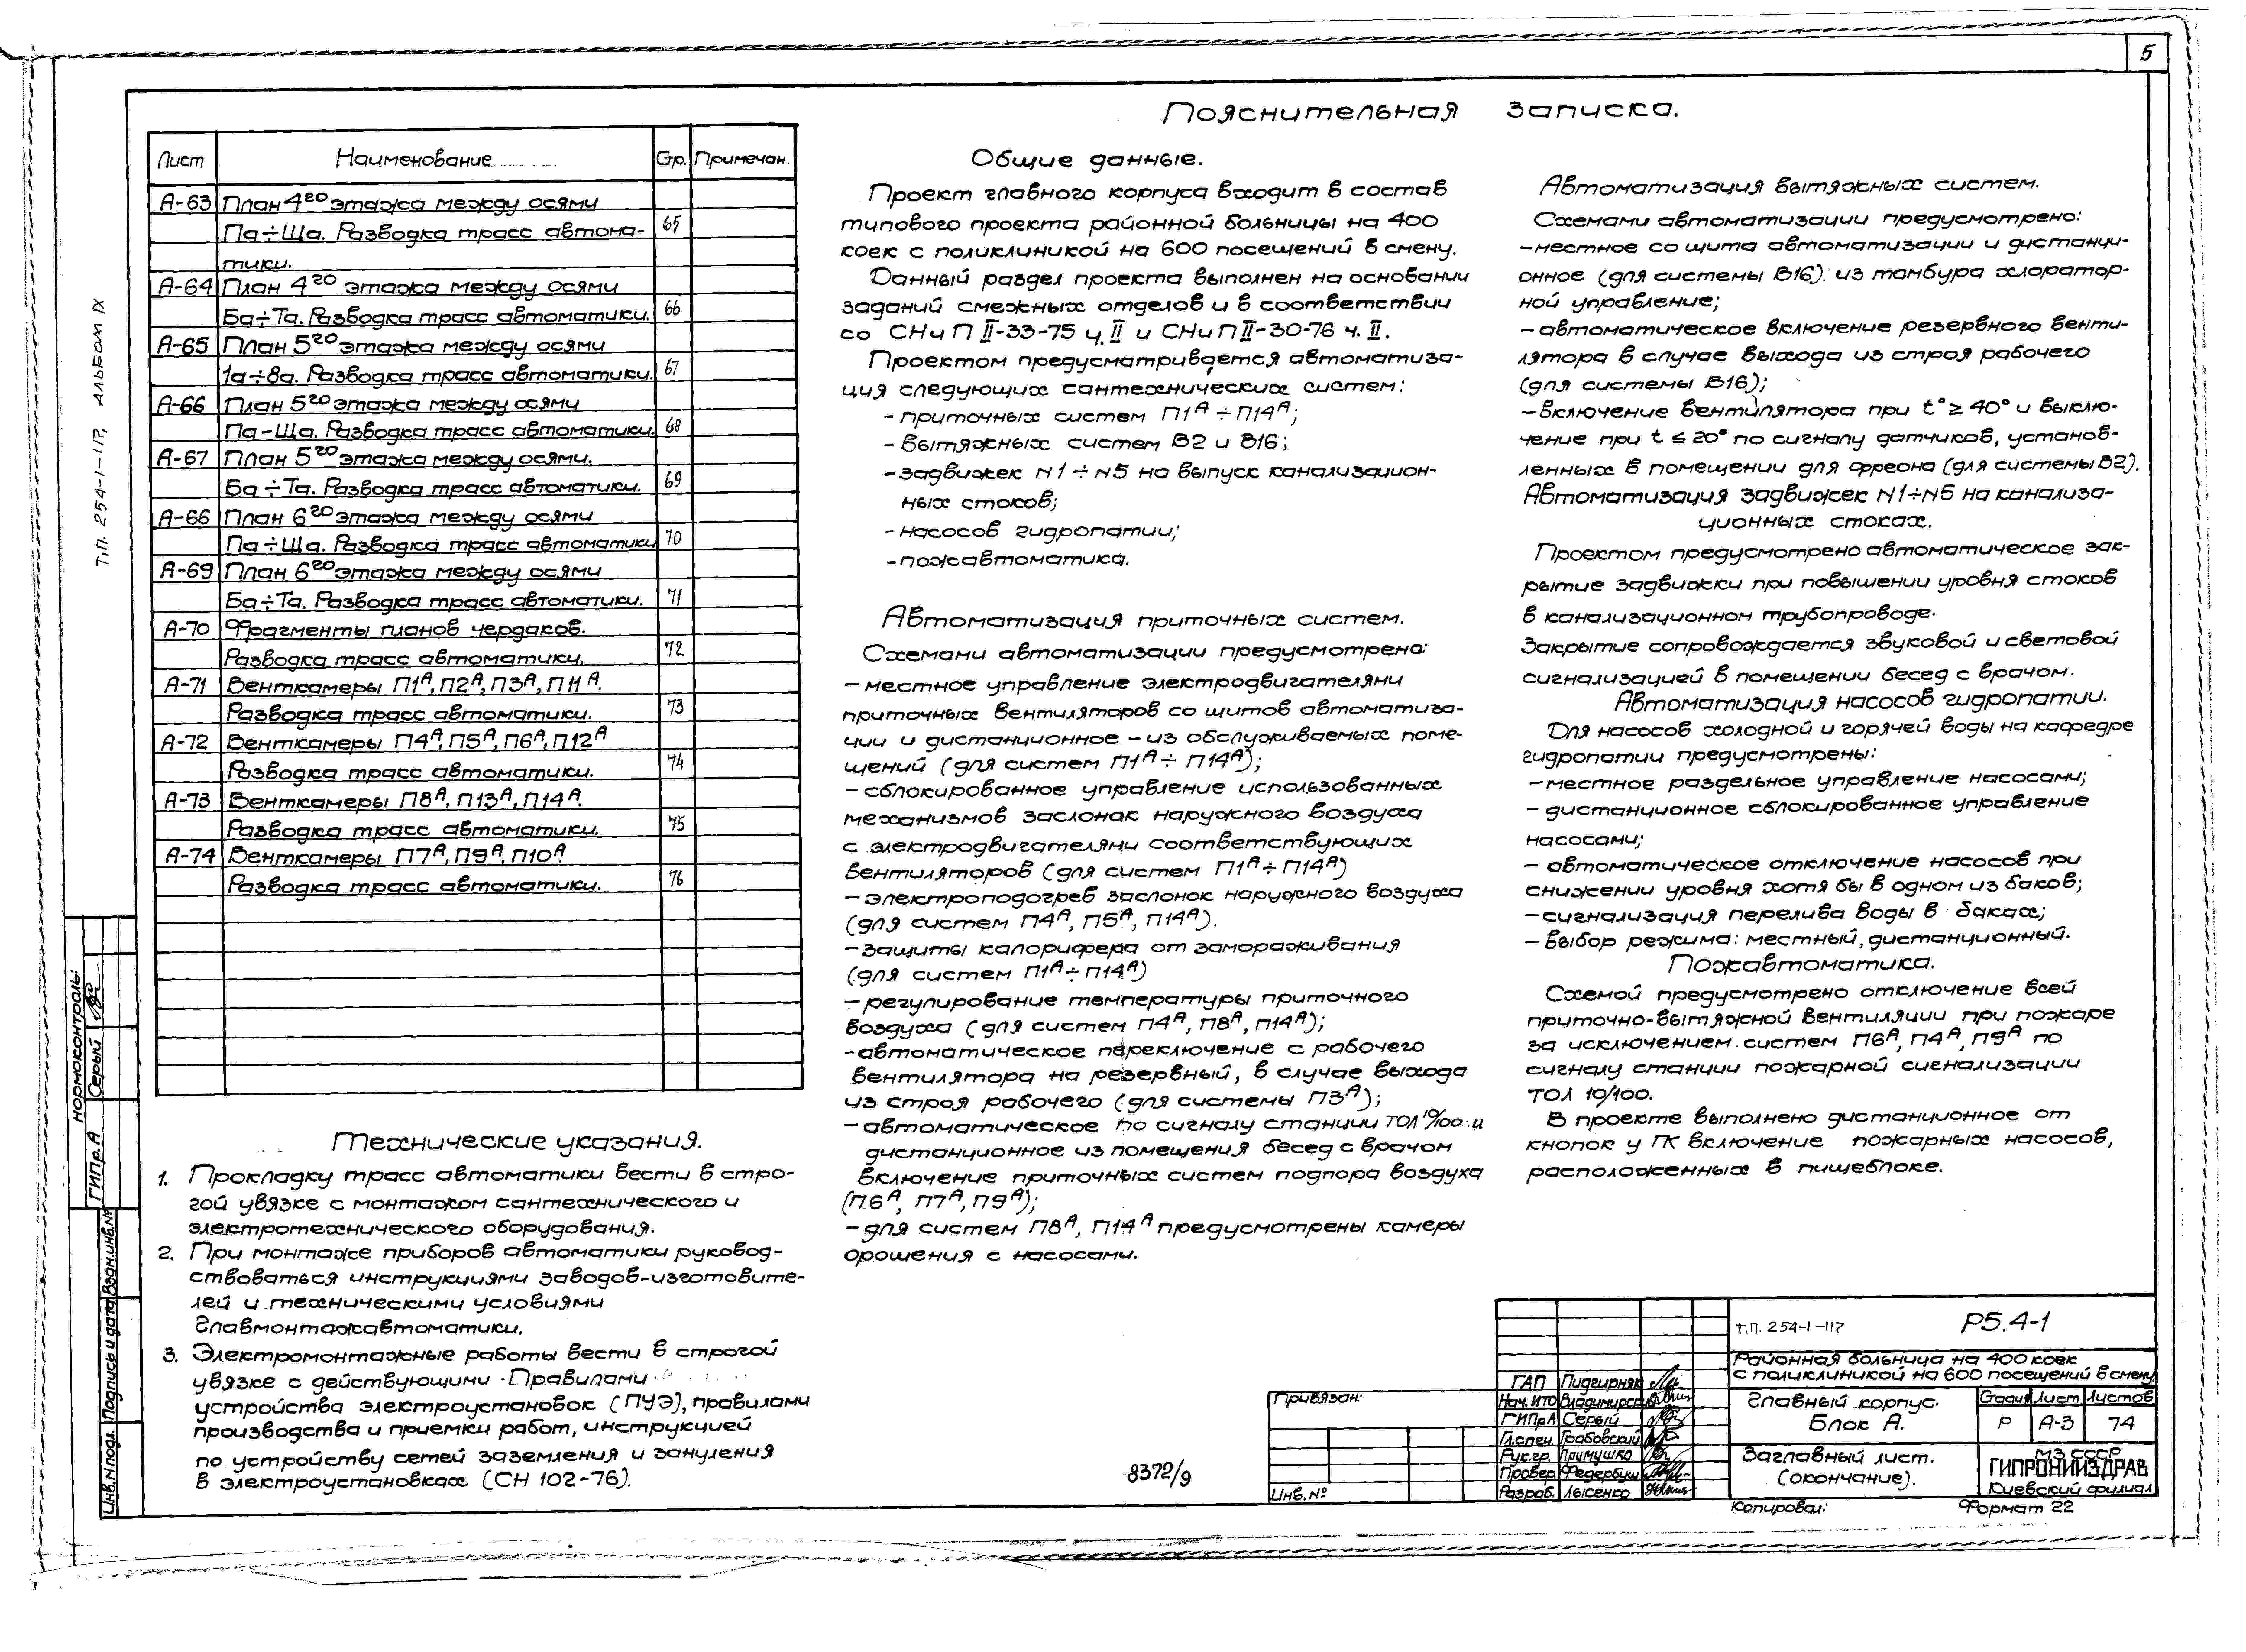 5
Т.П. 254-1-117, АЛЬБОМ IX
Пояснительная записка.
Лист Наименование Стр. Примечан.
А-63 План 4го этажа между осями
Па÷Ща. Разводка трасс автома- 65
тики.
А-64 План 4го этажа между осями
Ба÷Та. Разводка трасс автоматики. 66
А-65 План 5го этажа между осями
1а÷8а. Разводка трасс автоматики. 67
А-66 План 5го этажа между осями
Па-Ща. Разводка трасс автоматики. 68
А-67 План 5го этажа между осями.
Ба÷Та. Разводка трасс автоматики. 69
А-66 План 6го этажа между осями
Па÷Ща. Разводка трасс автоматики 70
А-69 План 6го этажа между осями
Ба÷Та. Разводка трасс автоматики. 71
А-70 Фрагменты планов чердаков.
Разводка трасс автоматики. 72
А-71 Венткамеры П1А, П2А, П3А, П11А.
Разводка трасс автоматики. 73
А-72 Венткамеры П4А, П5А, П6А, П12А
Разводка трасс автоматики. 74
А-73 Венткамеры П8А, П13А, П14А.
Разводка трасс автоматики. 75
А-74 Венткамеры П7А, П9А, П10А.
Разводка трасс автоматики. 76
Технические указания.
1. Прокладку трасс автоматики вести в стро-
гой увязке с монтажом сантехнического и
электротехнического оборудования.
2. При монтаже приборов автоматики руковод-
ствоваться инструкциями заводов-изготовите-
лей и техническими условиями
Главмонтажавтоматики.
3. Электромонтажные работы вести в строгой
увязке с действующими Правилами
устройства электроустановок (ПУЭ), правилами
производства и приемки работ, инструкцией
по устройству сетей заземления и зануления
в электроустановках (СН 102-76).
Общие данные.
Проект главного корпуса входит в состав
типового проекта районной больницы на 400
коек с поликлиникой на 600 посещений в смену.
Данный раздел проекта выполнен на основании
заданий смежных отделов и в соответствии
со СНиП II-33-75 ч. II и СНиП II-30-76 ч. II.
Проектом предусматривается автоматиза-
ция следующих сантехнических систем:
- приточных систем П1А ÷ П14А;
- вытяжных систем В2 и В16;
- задвижек N1 ÷ N5 на выпуск канализацион-
ных стоков;
- насосов гидропатии;
- пожавтоматика.
Автоматизация приточных систем.
Схемами автоматизации предусмотрено:
- местное управление электродвигателями
приточных вентиляторов со щитов автоматиза-
ции и дистанционное - из обслуживаемых поме-
щений (для систем П1А ÷ П14А);
- сблокированное управление использованных
механизмов заслонак наружного воздуха
с электродвигателями соответствующих
вентиляторов (для систем П1А ÷ П14А)
- электроподогрев заслонок наружного воздуха
(для систем П4А, П5А, П14А).
- защиты калорифера от замораживания
(для систем П1А ÷ П14А)
- регулирование температуры приточного
воздуха (для систем П4А, П8А, П14А);
- автоматическое переключение с рабочего
вентилятора на резервный, в случае выхода
из строя рабочего (для системы П3А);
- автоматическое по сигналу станции ТОЛ 10/100 и
дистанционное из помещения бесед с врачом
включение приточных систем подпора воздуха
(П6А, П7А, П9А);
- для систем П8А, П14А предусмотрены камеры
орошения с насосами.
Автоматизация вытяжных систем.
Схемами автоматизации предусмотрено:
- местное со щита автоматизации и дистанци-
онное (для системы В16) из тамбура хлоратор-
ной управление;
- автоматическое включение резервного венти-
лятора в случае выхода из строя рабочего
(для системы В16);
- включение вентилятора при t° ≥ 40° и выклю-
чение при t ≤ 20° по сигналу датчиков, установ-
ленных в помещении для фреона (для системы В2).
Автоматизация задвижек N1÷N5 на канализа-
ционных стоках.
Проектом предусмотрено автоматическое зак-
рытие задвижки при повышении уровня стоков
в канализационном трубопроводе.
Закрытие сопровождается звуковой и световой
сигнализацией в помещении бесед с врачом.
Автоматизация насосов гидропатии.
Для насосов холодной и горячей воды на кафедре
гидропатии предусмотрены:
- местное раздельное управление насосами;
- дистанционное сблокированное управление
насосами;
- автоматическое отключение насосов при
снижении уровня хотя бы в одном из баков;
- сигнализация перелива воды в баках;
- выбор режима: местный, дистанционный.
Пожавтоматика.
Схемой предусмотрено отключение всей
приточно-вытяжной вентиляции при пожаре
за исключением систем П6А, П4А, П9А по
сигналу станции пожарной сигнализации
ТОЛ 10/100.
В проекте выполнено дистанционное от
кнопок у ПК включение пожарных насосов,
расположенных в пищеблоке.
нормоконтроль:
ГИПр.А Серый
Инв.N подл. Подпись и дата Взам.инв.N
8372/9
Привязан:
Инв. №
ГАП Пидгирняк
Нач. ИТО
ГИПрА Серый
Гл.спец. Грабовский
Рук.гр. Примушко
Провер. Федербуш
Разраб. Лысенко
Т.П. 254-1-117 Р5.4-1
Районная больница на 400 коек
с поликлиникой на 600 посещений в смену
Главный корпус.
Блок А.
Стадия Лист Листов
Р А-3 74
Заглавный лист.
(окончание).
МЗ СССР
ГИПРОНИИЗДРАВ
Киевский филиал
Копировал: Формат 22